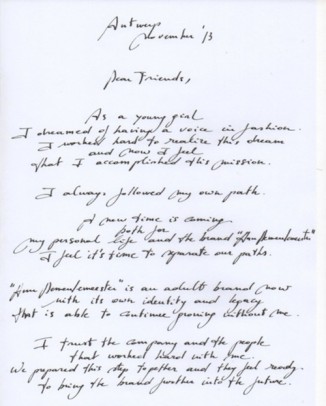 Antwerp
November '13
Dear Friends,
As a young girl
I dreamed of having a voice in fashion.
I worked hard to realize this dream
and now I feel
that I accomplished this mission.
I always followed my own path.
A new time is coming
both for
my personal life and the brand "Ann Demeulemeester"
I feel it's time to separate our paths.
"Ann Demeulemeester" is an adult brand now
with its own identity and legacy
that is able to continue growing without me.
I trust the company and the people
that worked hard with me.
We prepared this step together and they feel ready
to bring the brand further into the future.